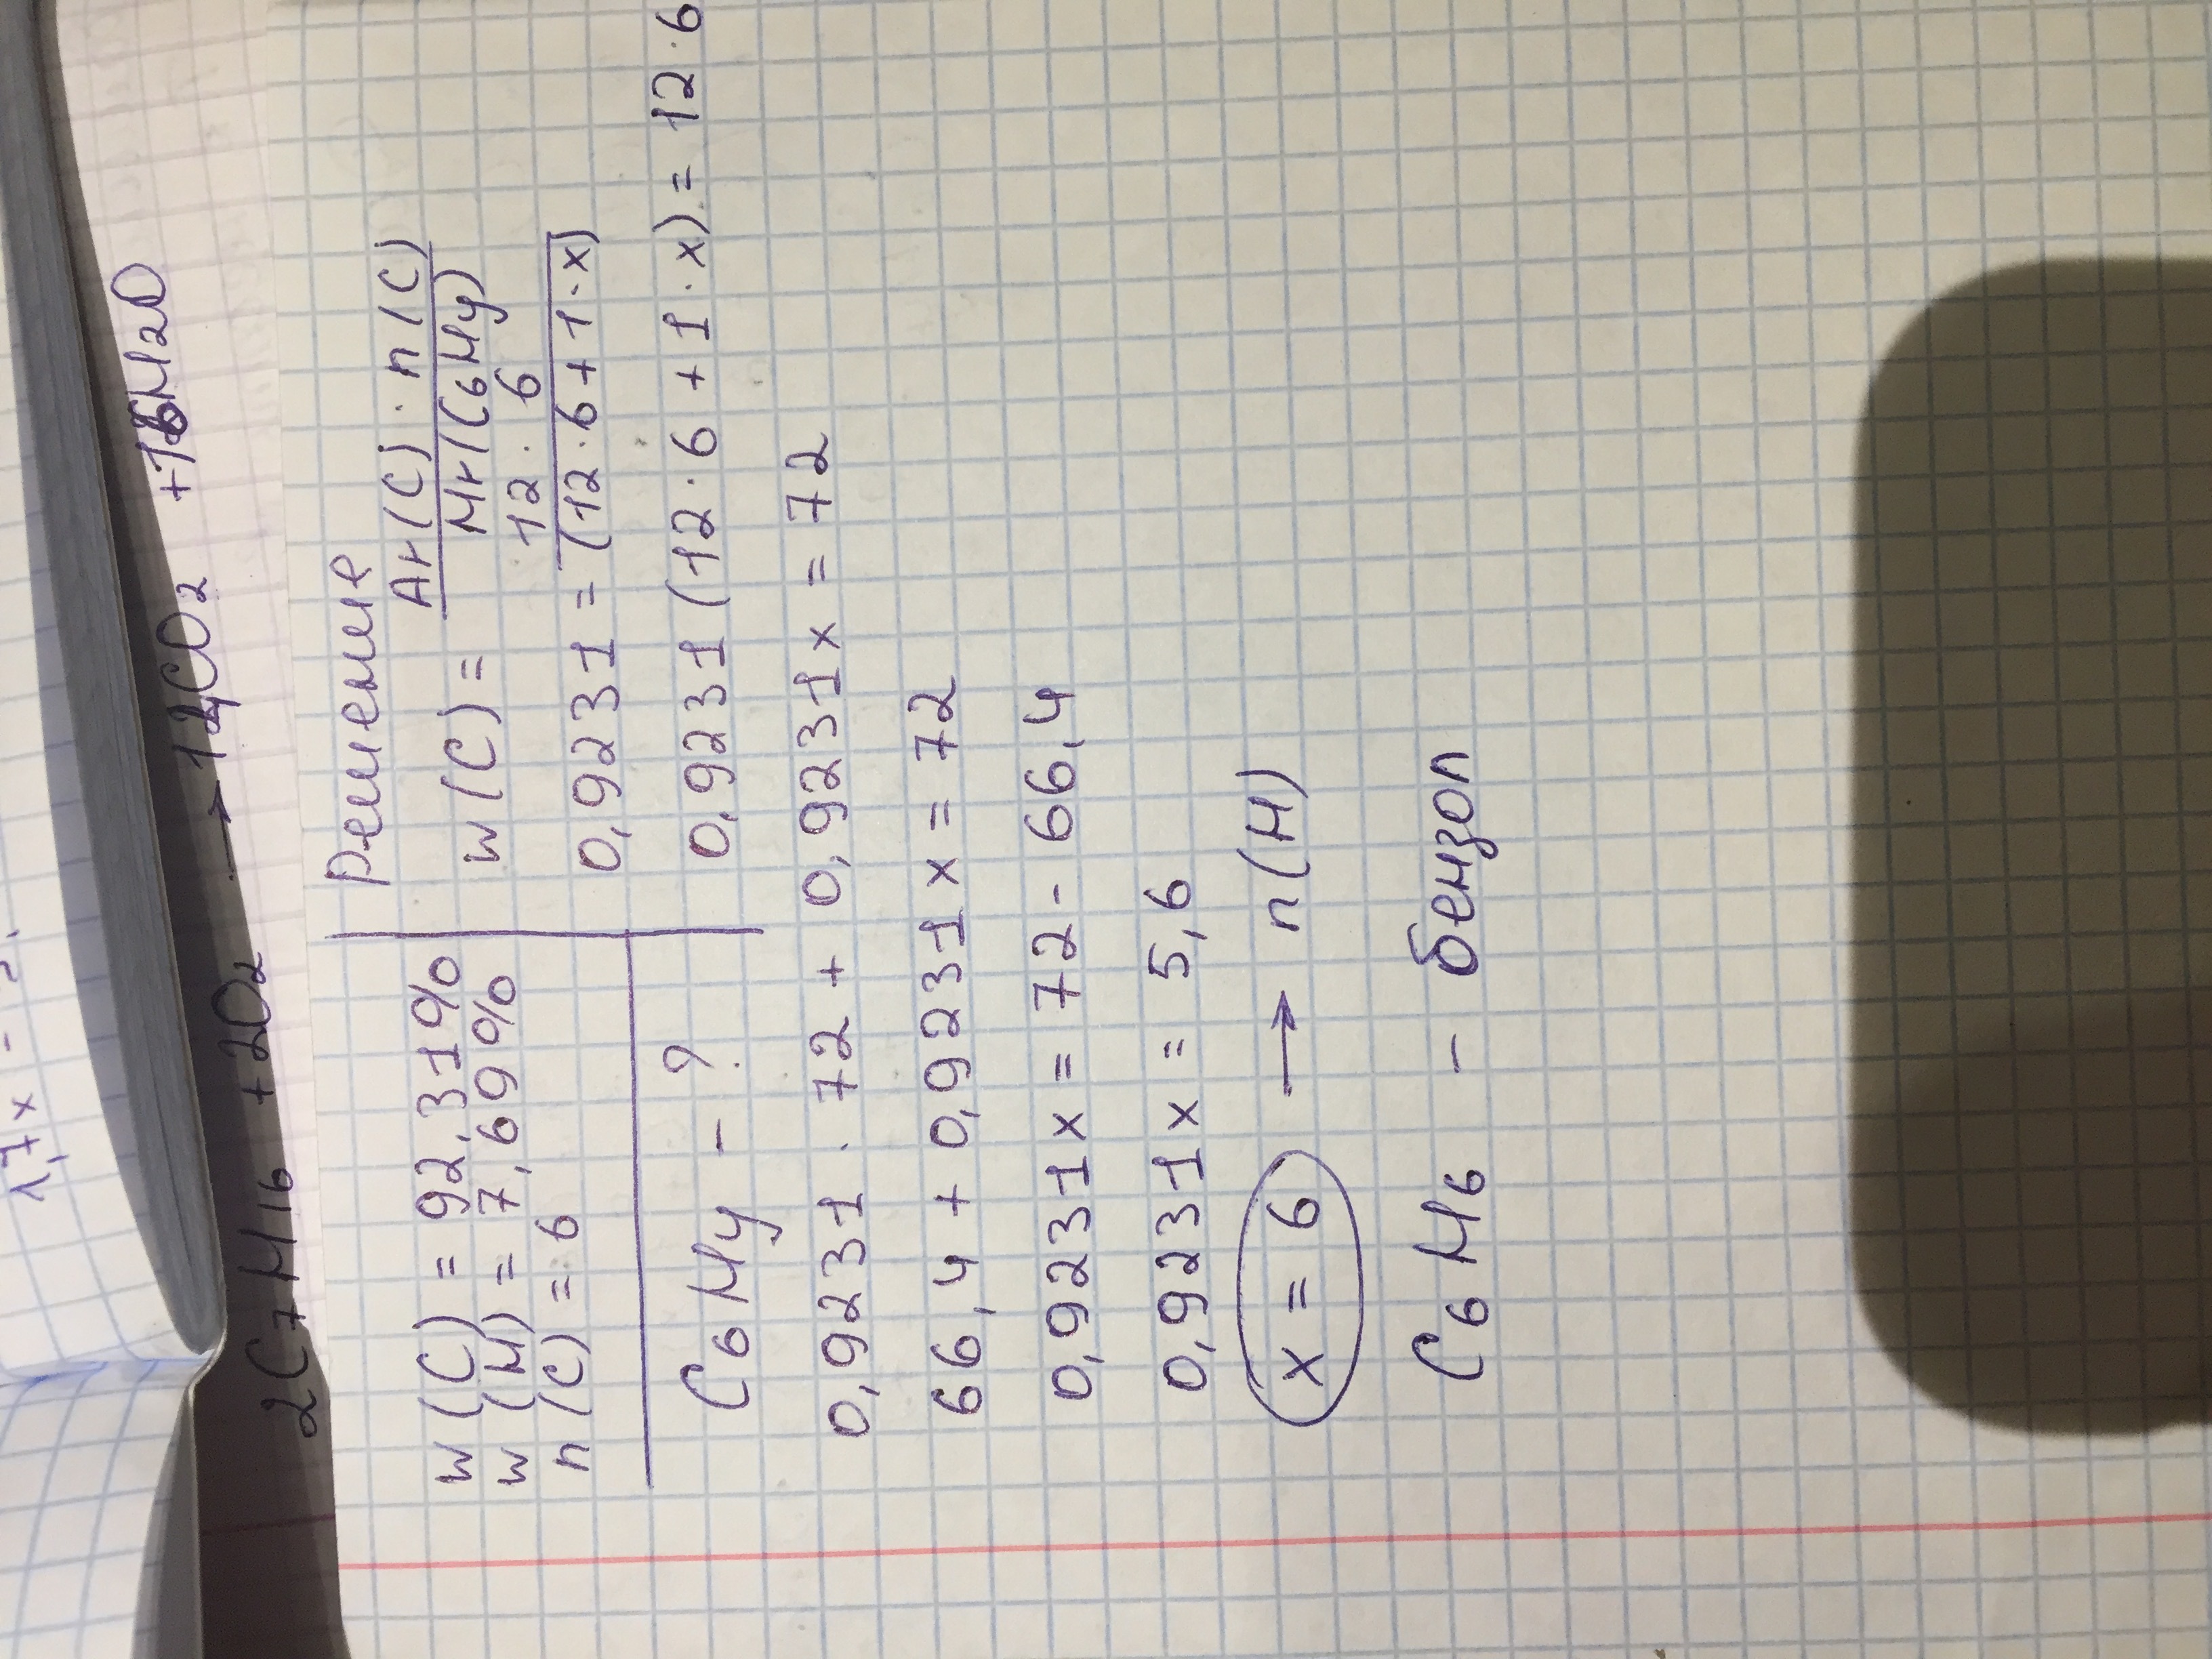 2C7H16 + 2O2 → 14CO2 + 16H2O
Решение
w(C) = 92,31%
w(H) = 7,69%
n(C) = 6
C6Hy - ?
w(C) = Ar(C) · n(C) / Mr(C6Hy)
0,9231 = 12 · 6 / (12 · 6 + 1 · x)
0,9231 (12 · 6 + 1 · x) = 12 · 6
0,9231 · 72 + 0,9231x = 72
66,4 + 0,9231x = 72
0,9231x = 72 - 66,4
0,9231x = 5,6
x = 6 → n(H)
C6H6 - бензол